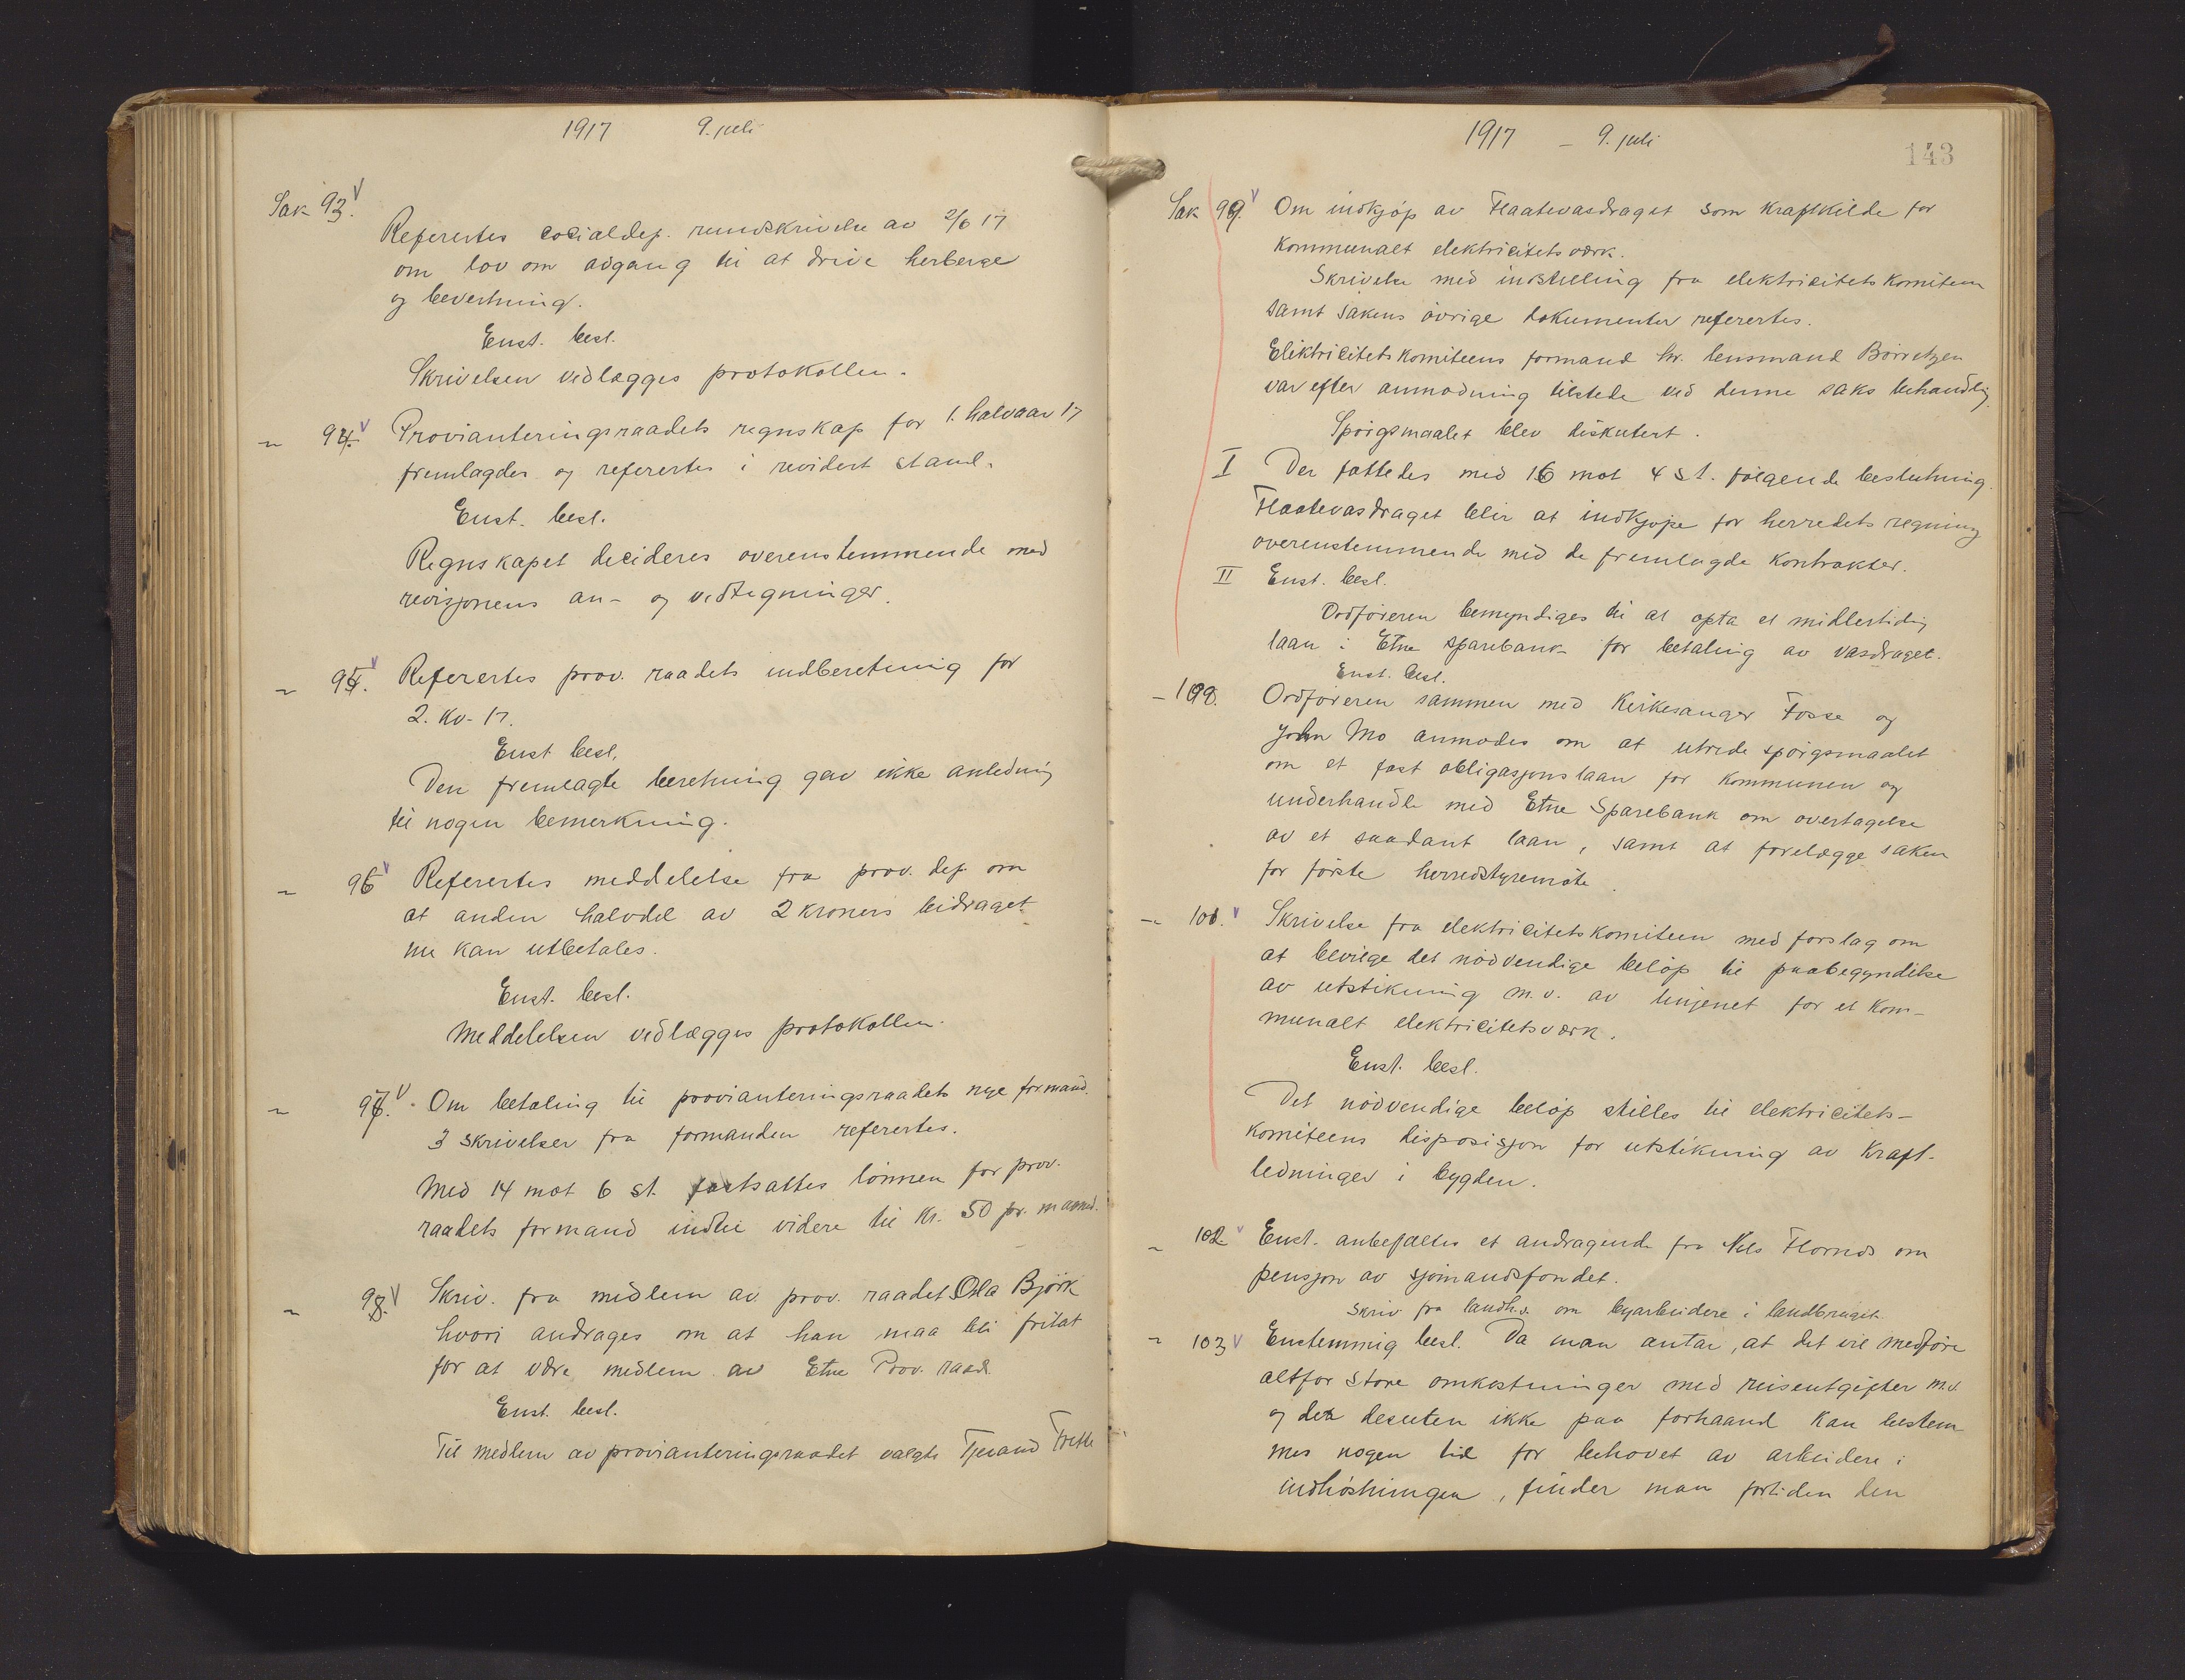 1917 9. juli
Sak 93.
Referertes socialdep. rundskrivelse av 2/6 17
om lov om adgang til at drive herberge
og bevertning.
Enst. besl.
Skrivelsen vedlægges protokollen.
" 94. Provianteringsraadets regnskap for 1. halvaar 17
fremlagdes og referertes i revidert stand.
Enst. besl.
Regnskapet decideres overenstemmende med
revisjonens an- og vedtegninger.
" 95. Referertes prov. raadets indberetning for
2. kv. 17.
Enst besl.
Den fremlagte beretning gav ikke anledning
til nogen bemerkning.
" 96 Referertes meddelelse fra prov. dep. om
at anden halvdel av 2 kroners bidraget
nu kan utbetales.
Enst. besl.
Meddelelsen vedlægges protokollen.
" 97. Om betaling til provianteringsraadets nye formand.
3 skrivelser fra formanden referertes.
Med 14 mot 6 st. fastsattes lønnen for prov.
raadets formand indtil videre til kr. 50 pr. maaned.
" 98. Skriv. fra medlem av prov. raadet Ola Björk
hvori andrages om at han maa bli fritat
for at være medlem av Etne Prov. raad.
Enst. besl.
Til medlem av provianteringsraadet valgtes Tjerand Frette
1917 – 9. juli
143
Sak 99. Om indkjöp av Flaatevasdraget som kraftkilde for
kommunalt elektricitetsværk.
Skrivelse med indstilling fra elektricitetskomiteen
samt sakens övrige dokumenter referertes.
Elektricitetskomiteens formand hr. lensmand Börretzen
var efter anmodning tilstede ved denne saks behandling.
Spörgsmaalet blev diskutert.
I Der fattedes med 16 mot 4 st. fölgende beslutning.
Flaatevasdraget blir at indkjöpe for herredets regning
overenstemmende med de fremlagde kontrakter.
II Enst. besl.
Ordföreren bemyndiges til at opta et midlertidig
laan i Etne sparebank for betaling av vasdraget.
Enst. besl.
– 100. Ordföreren sammen med kirkesanger Fosse og
John Mo anmodes om at utrede spörgsmaalet
om et fast obligasjonslaan for kommunen og
underhandle med Etne Sparebank om overtagelse
av et saadant laan, samt at forelægge saken
for förste herredstyremöte.
" 101. Skrivelse fra elektricitetskomiteen med forslag om
at bevilge det nödvendige belöp til paabegyndelse
av utstikning m.v. av linjenet for et kom-
munalt elektricitetsværk.
Enst. besl.
Det nödvendige belöp stilles til elektricitets-
komiteens disposisjon for utstikning av kraft-
ledninger i bygden.
" 102. Enst. anbefaltes et andragende fra Nils Flornes om
pensjon av sjömandsfondet.
Skriv fra landb.v. om byarbeidere i landbruget.
" 103 Enstemmig besl. Da man antar, at det vil medföre
altfor store omkostninger med reiseutgifter m.v.
og det desuten ikke paa forhaand kan bestem
mes nogen tid for behovet av arbeidere i
indhöstningen, finder man fortiden den